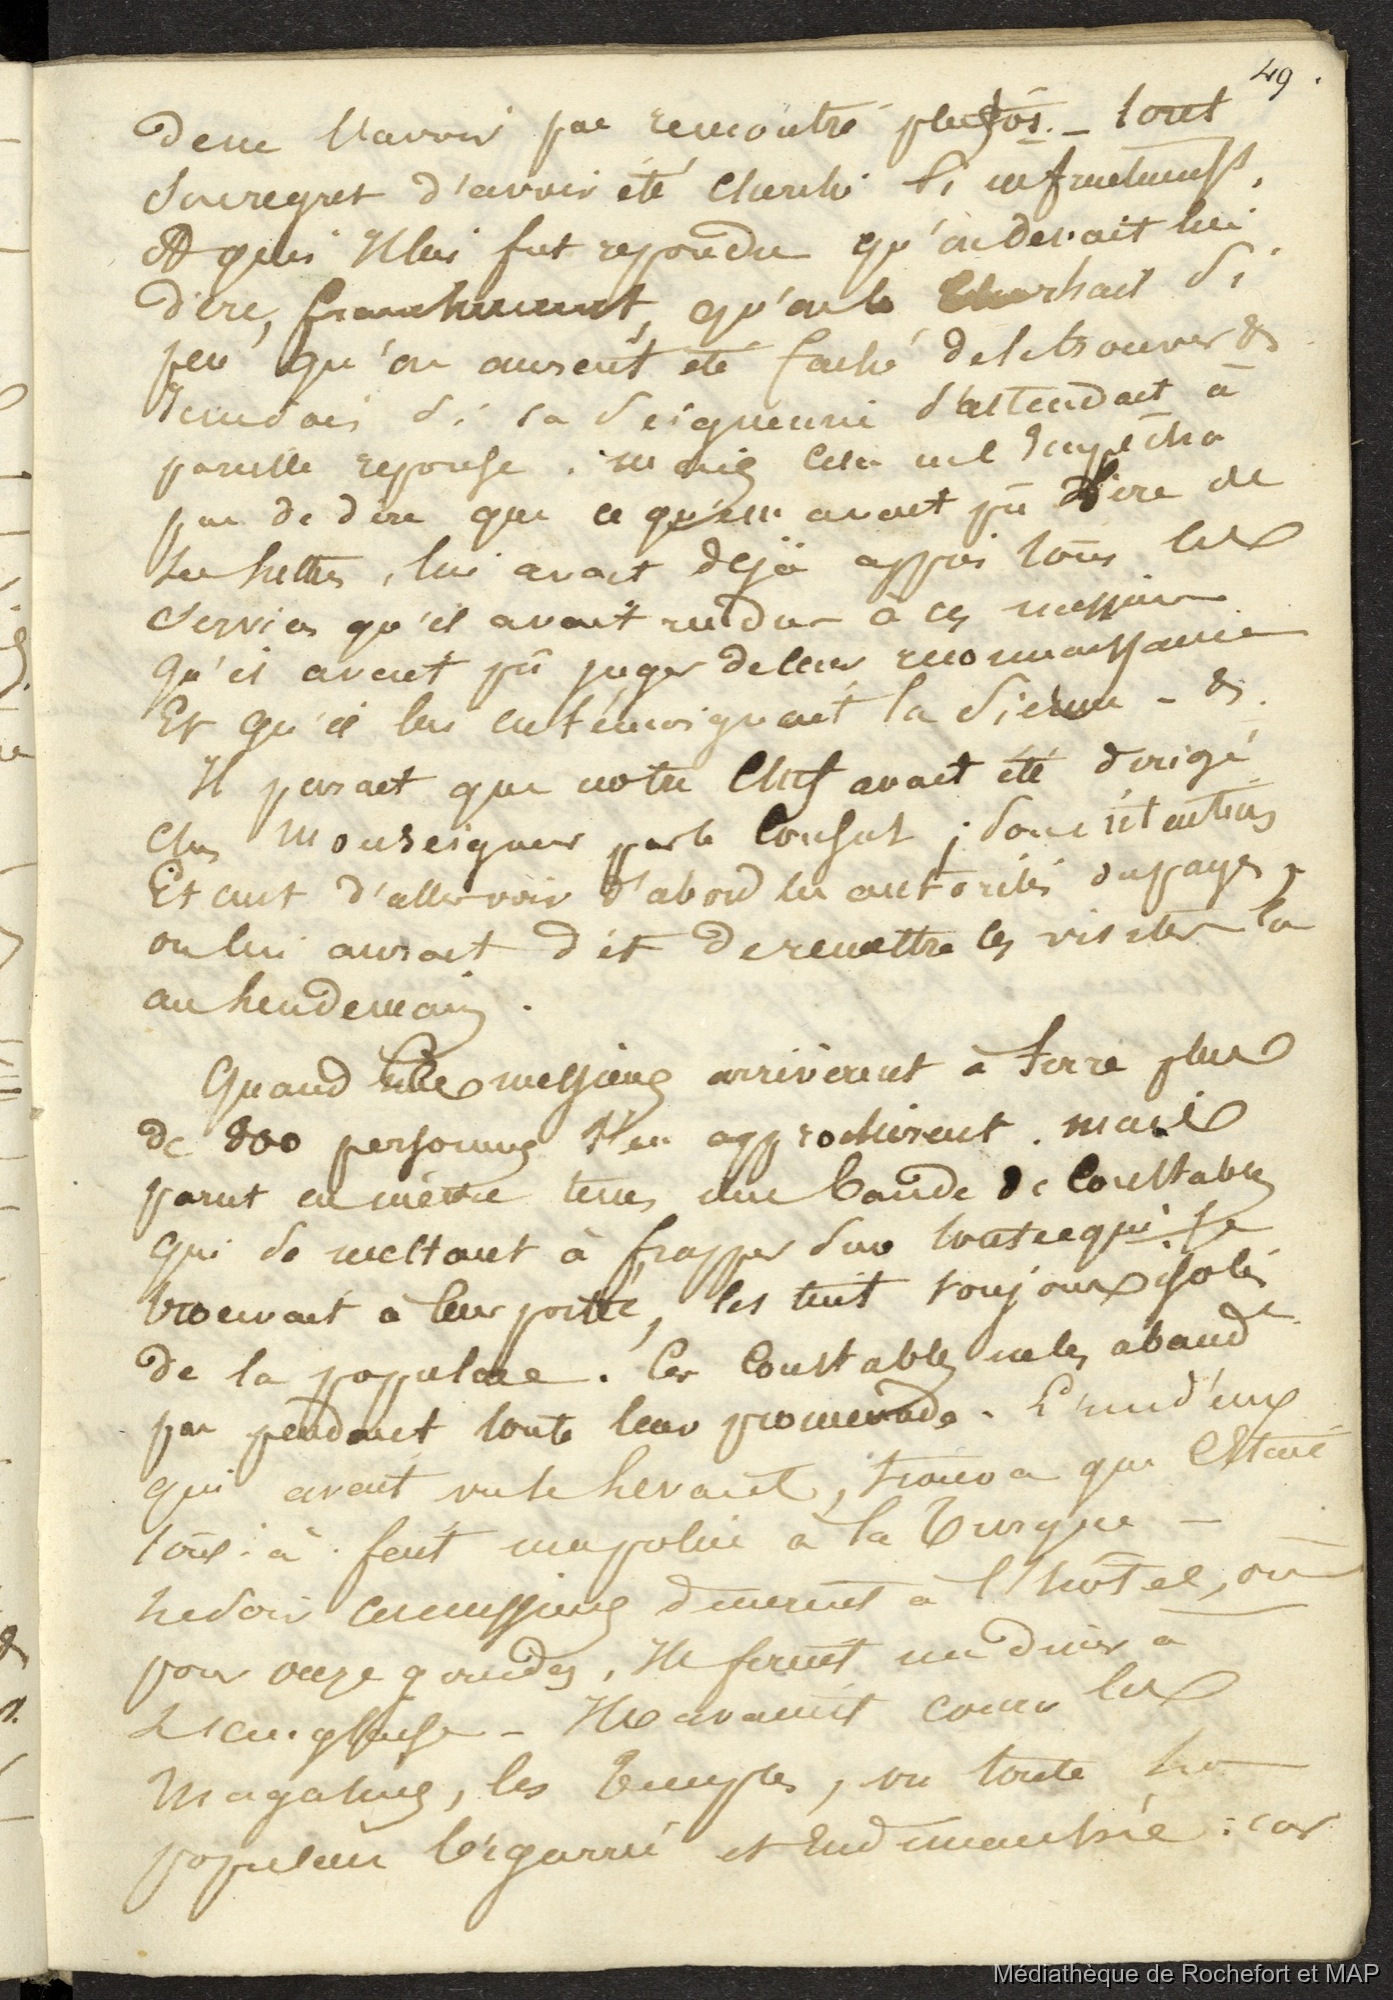 49.
de ne l'avoir pas rencontré plustôs. _ tout
son regret d'avoir été cherché si infructueusst.
A quoi Il lui fut repondu qu'on devait lui
dire, franchement, qu'on le cherchait si
peu qu'on auroit été faché de le trouver &
Jeudois si sa seigneurie s'attendait à
pareille reponse . mais cela ne l'empêcha
pas de dire que ce qu'on avait pû dire de
lui avait deja appris tous les
services qu'il avait rendus à ces messieurs
qu'il avait pû juger de leur reconnaissance
Et qu'il leur en témoignait la sienne - &.
Il parait que notre Chef avait été dirigé
chez Monseigneur par le Consul ; son intention
Etant d'aller voir d'abord les autorités du pays,
on lui aurait dit de remettre les visites la
au lendemain .
Quand messieurs arrivèrent à terre plus
de 800 personnes s'en approchèrent . mais
parut en même tems une bande de Constables
qui se mettant à frapper sur tout ce qui se
trouvait à leur portée, les tint toujours isolés
de la populace . Ces Constables ne les aband
pas pendant toute leur promenade . L'un d'eux
qui avait vu le levant, trouva que c'était
tout à fait une police à la Turque _
Le soir ces messieurs dinerent à l'hôtel, où
pour onze gourdes, Ils firent un diner à
L'anglaise _ Ils avaient couru les
Magasins, les Temples, vu toute la
population bigarrée et Endimanchée : car
Médiathèque de Rochefort et MAP